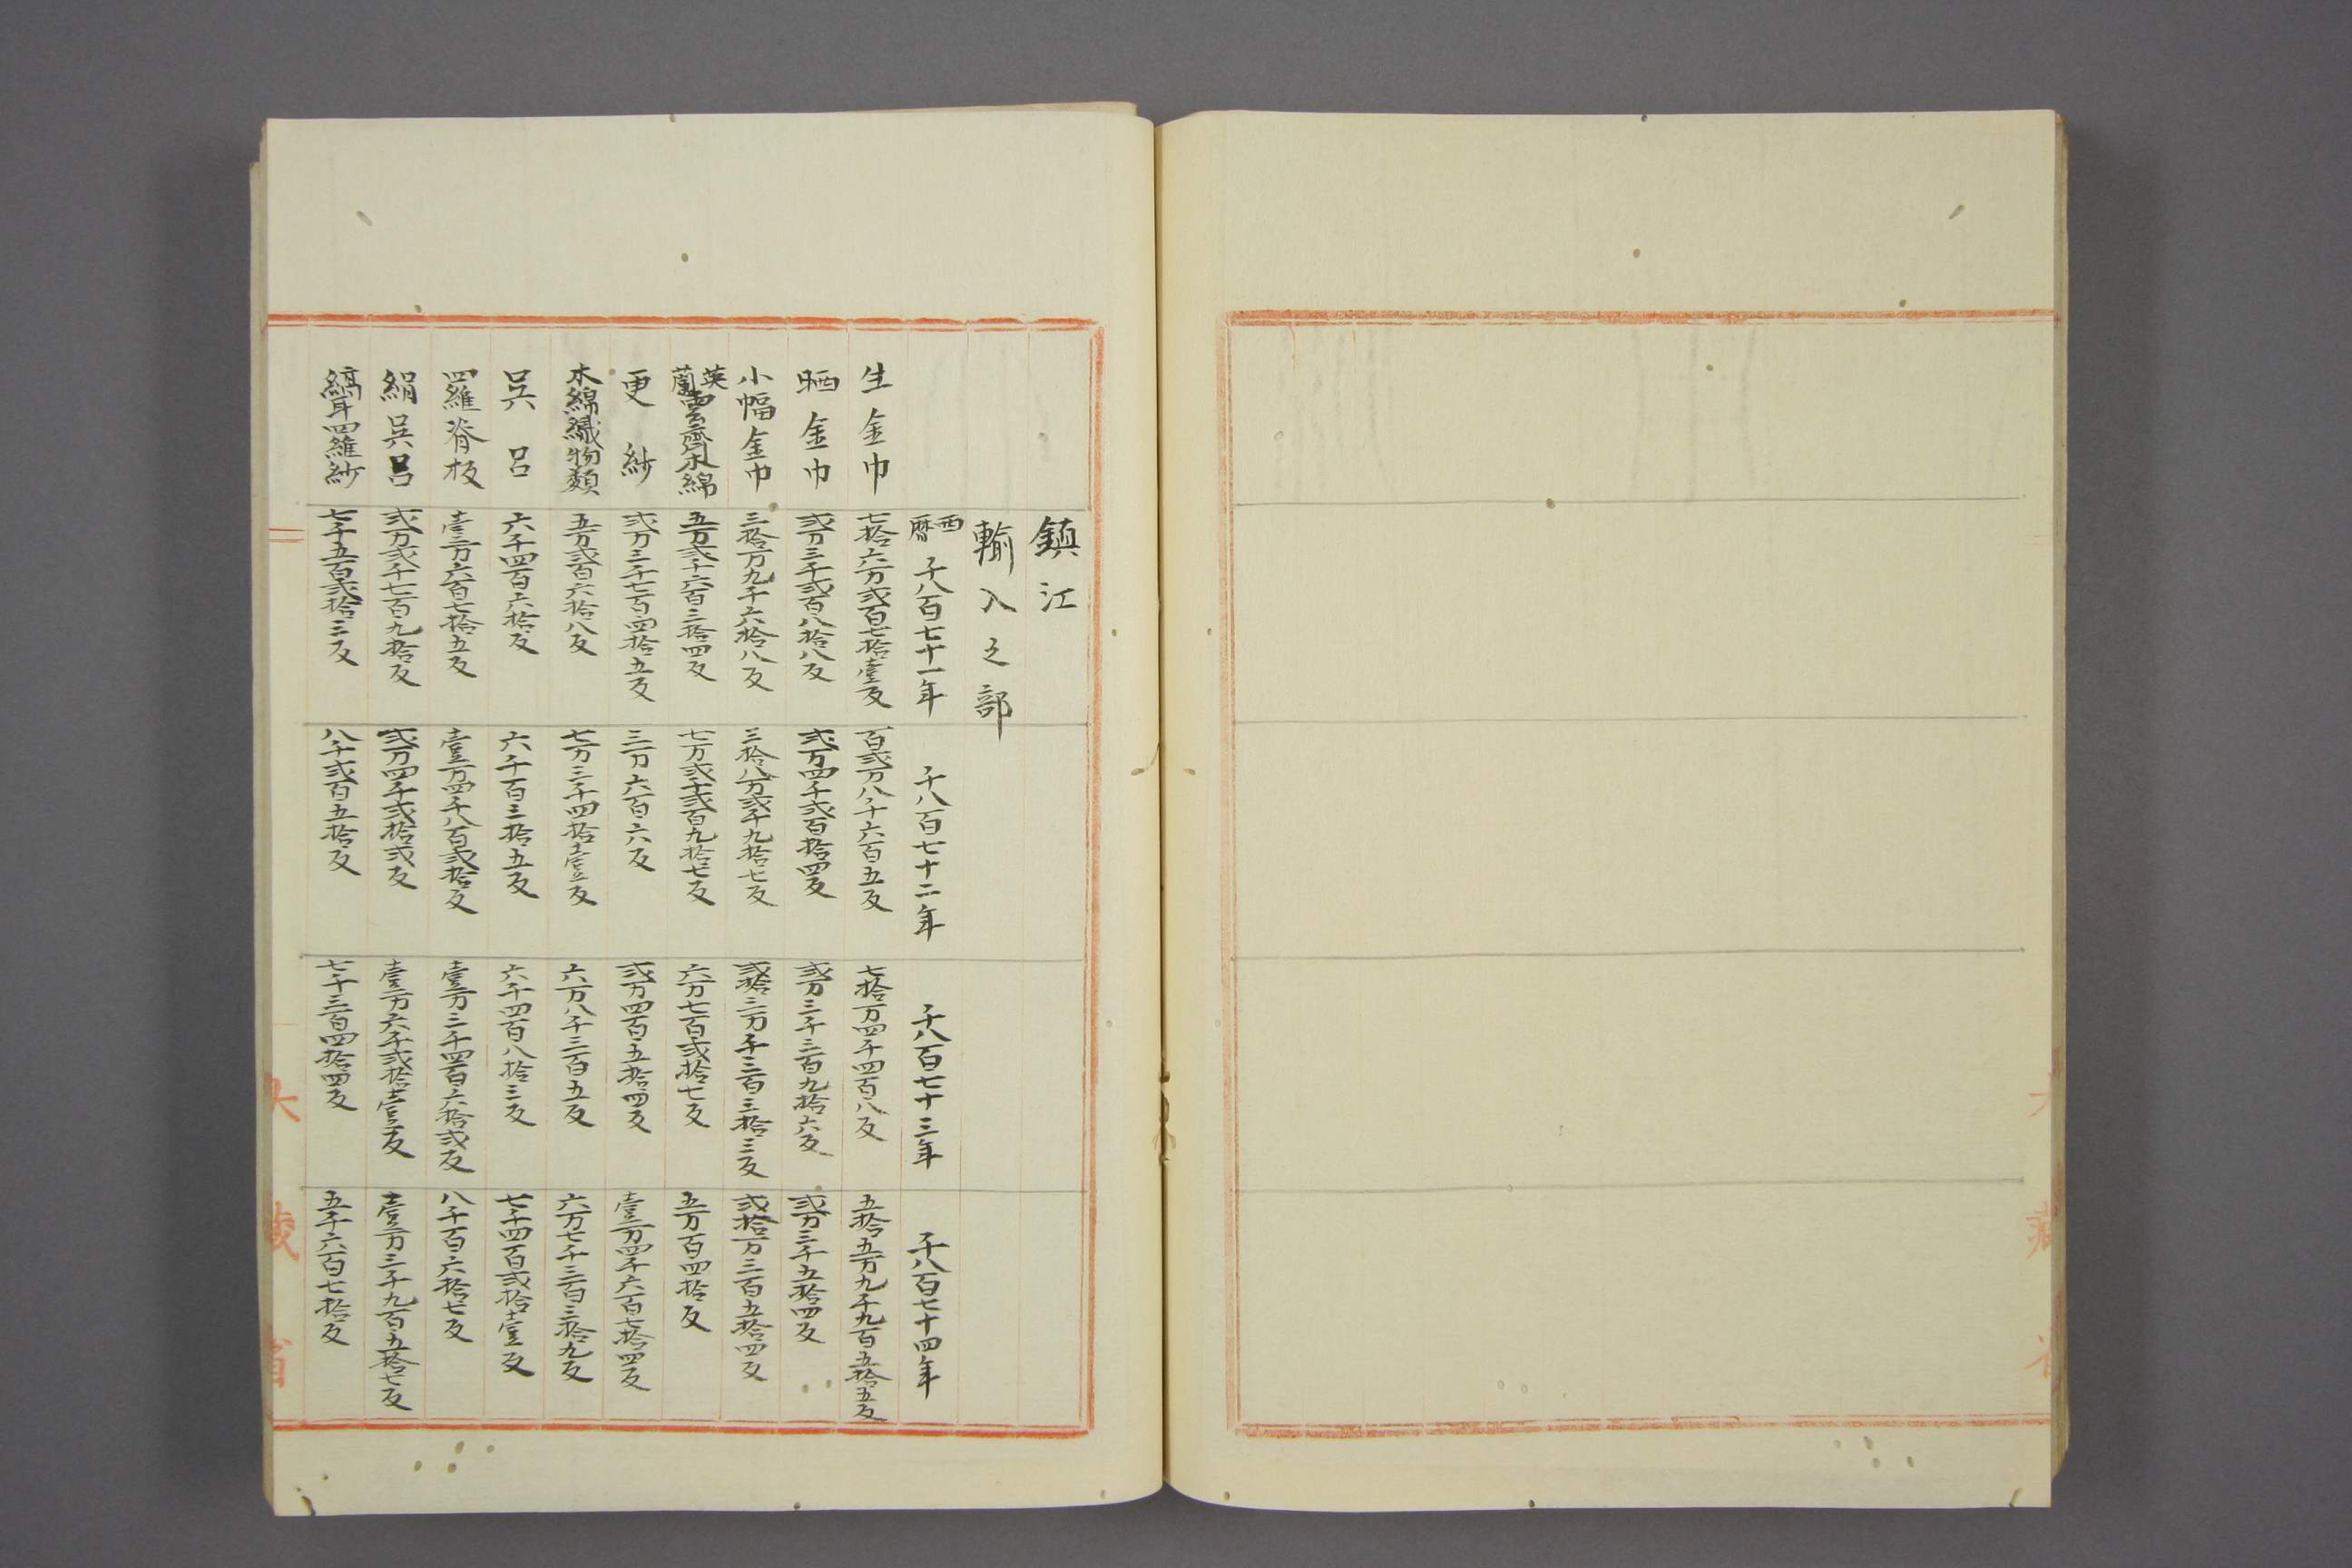 鎮江
輸入之部
西暦 千八百七十一年 千八百七十二年 千八百七十三年 千八百七十四年
生金巾 七拾六万弐百七拾壹反 百弐万八千六百五反 七拾万四千四百八反 五拾五万九千九百五拾五反
晒金巾 弐万三千弐百八拾八反 弐万四千弐百拾四反 弐万三千三百九拾六反 弐万三千五拾四反
小幅金巾 三拾万九千六拾八反 三拾八万弐千九拾七反 弐拾三万千三百三拾三反 弐拾万三百五拾四反
英蘭雲斎木綿 五万弐千六百三拾四反 七万弐千弐百九拾七反 六万七百弐拾七反 五万百四拾反
更紗 弐万三千七百四拾五反 三万六百六反 弐万四百五拾四反 壹万四千六百七拾四反
木綿織物類 五万弐百六拾八反 七万三千四拾壹反 六万八千三百五反 六万七千三百三拾九反
呉呂 六千四百六拾反 六千百三拾五反 六千四百八拾三反 七千四百弐拾壹反
四羅脊板 壹万六百七拾五反 壹万四千八百弐拾反 壹万三千四百六拾弐反 八千百六拾七反
絹呉呂 弐万弐千七百九拾反 弐万四千弐拾弐反 壹万六千弐拾壹反 壹万三千九百五拾七反
縞耳四羅紗 七千五百弐拾三反 八千弐百五拾反 七千三百四拾四反 五千六百七拾反
大藏省